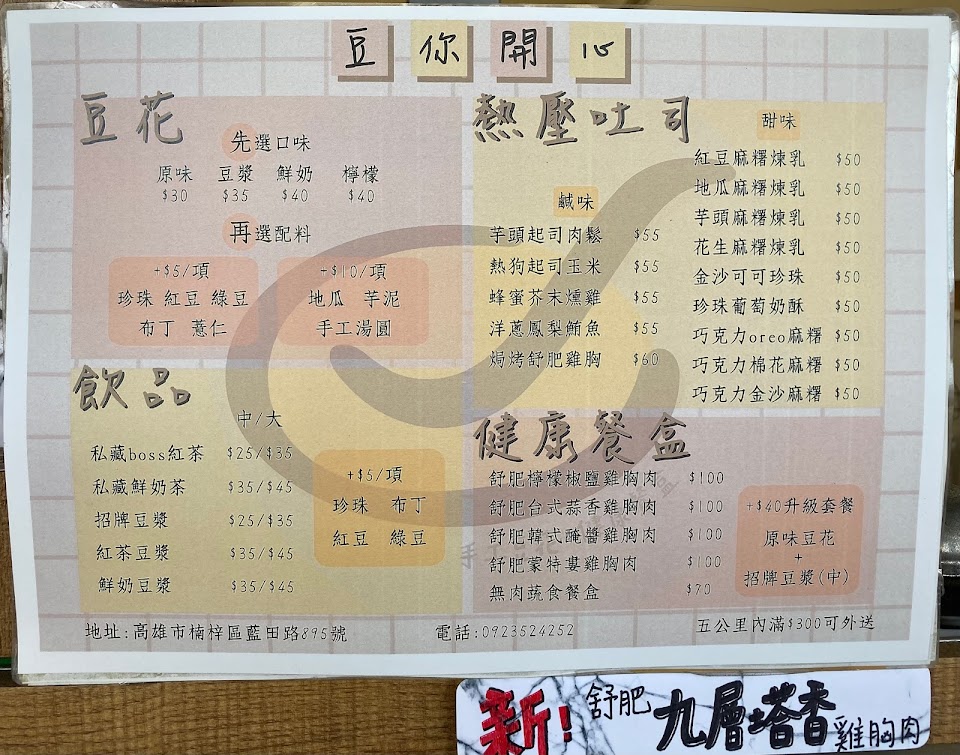 豆你開心
豆花
先選口味
原味 豆漿 鮮奶 檸檬
$30 $35 $40 $40
再選配料
+$5/項
珍珠 紅豆 綠豆
布丁 薏仁
+$10/項
地瓜 芋泥
手工湯圓
飲品
中/大
私藏boss紅茶 $25/$35
私藏鮮奶茶 $35/$45
招牌豆漿 $25/$35
紅茶豆漿 $35/$45
鮮奶豆漿 $35/$45
+$5/項
珍珠 布丁
紅豆 綠豆
熱壓吐司
鹹味
芋頭起司肉鬆 $55
熱狗起司玉米 $55
蜂蜜芥末燻雞 $55
洋蔥鳳梨鮪魚 $55
焗烤舒肥雞胸 $60
甜味
紅豆麻糬煉乳 $50
地瓜麻糬煉乳 $50
芋頭麻糬煉乳 $50
花生麻糬煉乳 $50
金沙可可珍珠 $50
珍珠葡萄奶酥 $50
巧克力oreo麻糬 $50
巧克力棉花麻糬 $50
巧克力金沙麻糬 $50
健康餐盒
舒肥檸檬椒鹽雞胸肉 $100
舒肥台式蒜香雞胸肉 $100
舒肥韓式醃醬雞胸肉 $100
舒肥蒙特婁雞胸肉 $100
無肉蔬食餐盒 $70
+$40升級套餐
原味豆花
+
招牌豆漿(中)
地址:高雄市楠梓區藍田路895號
電話:0923524252
五公里內滿$300可外送
新!舒肥九層塔香雞胸肉